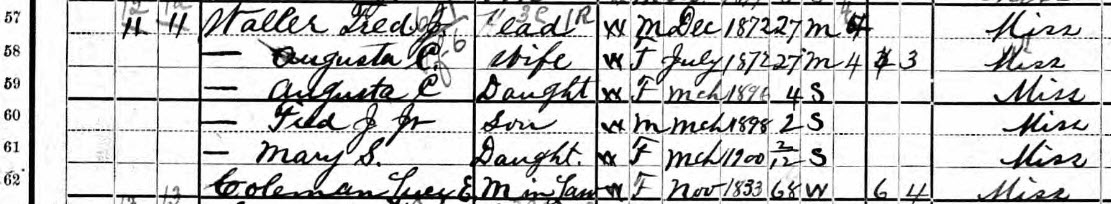 57 11 11 Waller Fred J. Head W M Dec 1872 27 M 4 Miss
58 — Augusta C. Wife W F July 1872 27 M 4 3 Miss
59 — Augusta C Daught W F Mch 1896 4 S Miss
60 — Fred J Jr Son W M Mch 1898 2 S Miss
61 — Mary S. Daught. W F Mch 1900 2/12 S Miss
62 Coleman Lucy E M in Law W F Nov 1833 68 W 6 4 Miss